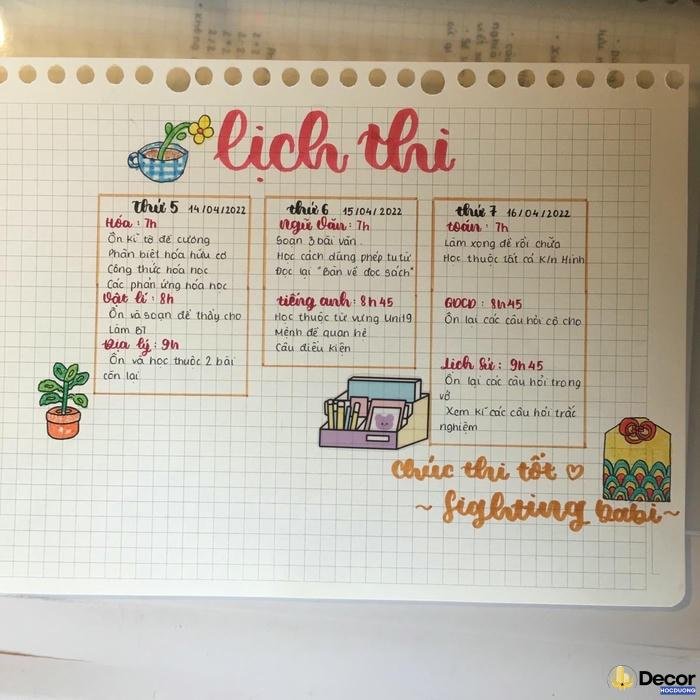 lịch thi
thứ 5 14/04/2022
Hóa : 7h
Ôn kĩ tờ đề cương
Phân biệt hóa hữu cơ
Công thức hóa học
Các phản ứng hóa học
Vật lí : 8h
Ôn và soạn đề thầy cho
Làm BT
Địa lý : 9h
Ôn và học thuộc 2 bài
còn lại
thứ 6 15/04/2022
Ngữ Văn : 7h
Soạn 3 bài văn
Học cách dùng phép tu từ
Đọc lại "Bàn về đọc sách"
tiếng anh : 8h45
Học thuộc từ vựng Unit9
Mệnh đề quan hệ
Câu điều kiện
thứ 7 16/04/2022
toán : 7h
Làm xong đề rồi chữa
Học thuộc tất cả K/n Hình
GDCD : 8h45
Ôn lại các câu hỏi cô cho
Lịch Sử : 9h45
Ôn lại các câu hỏi trong
vở
Xem kĩ các câu hỏi trắc
nghiệm
Chúc thi tốt ♡
~ fighting babi ~
Decor
HOCDUONG